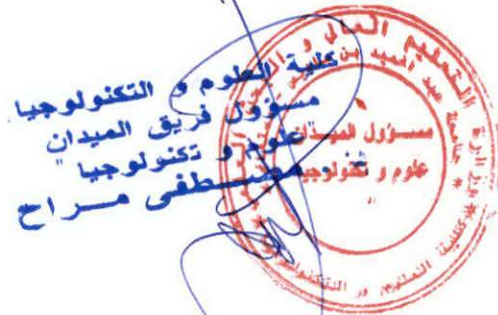 كلية العلوم و التكنولوجيا
مسؤول فريق الميدان
علوم و تكنولوجيا "
مصطفى مراح
وزارة التعليم العالي و البحث
جامعة عبد الحميد بن
كلية العلوم و التكنولوجيا
مسؤول الميدان
علوم و تكنولوجيا